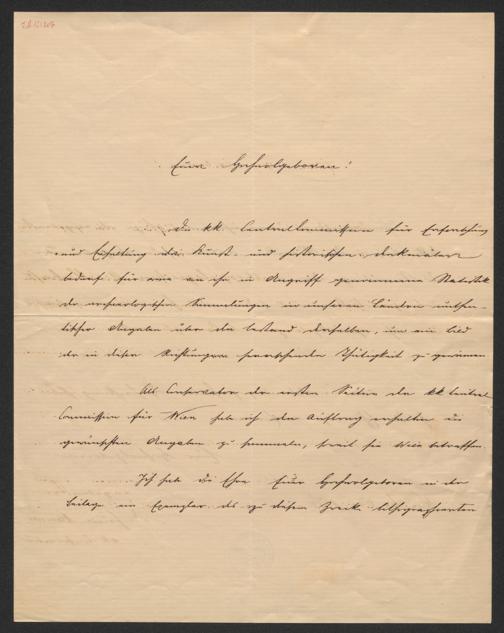 Euer Hochwolgeboren!
Die kk. Central Commission für Erforschung
und Erhaltung der Kunst- und historischen Denkmäler
bedarf für eine von ihr in Angriff genommene Statistik
der archaeologischen Sammlungen in unseren Ländern authen-
tischer Angaben über den Bestand derselben, um ein Bild
der in diesen Richtungen herrschenden Thätigkeit zu gewinnen
Als Conservator der ersten Section der kk Central
Commission für Wien habe ich den Auftrag erhalten die
gewünschten Angaben zu sammeln, soweit sie Wien betreffen.
Ich habe die Ehre Euer Hochwolgeboren in der
Beilage ein Exemplar des zu diesem Zwecke lithographirten